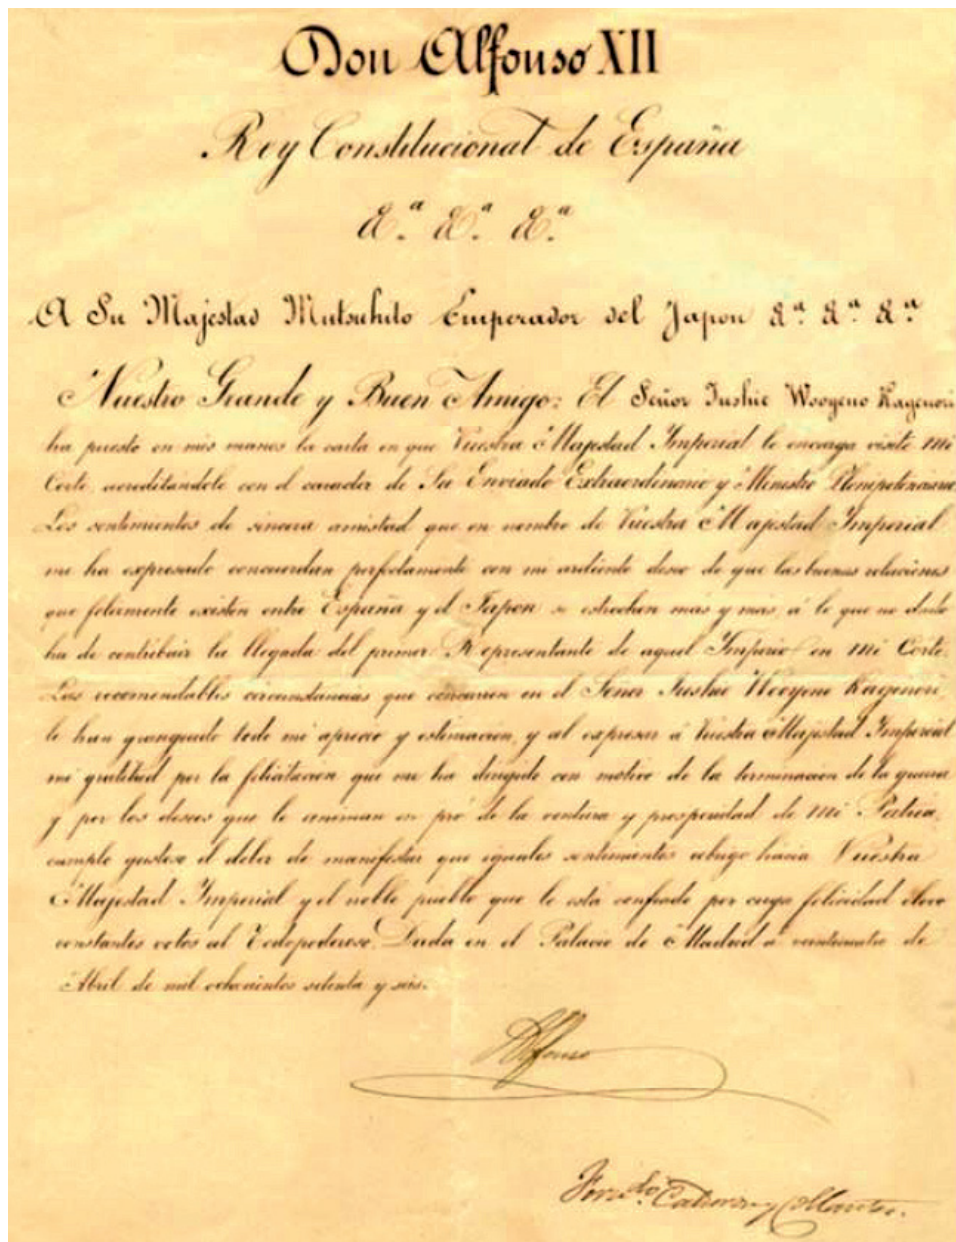 Don Alfonso XII
Rey Constitucional de España
&.ª &.ª &.ª
A Su Majestad Mutsuhito Emperador del Japon &.ª &.ª &.ª
Nuestro Grande y Buen Amigo: El Señor Iushie Wooyeno Kagenori
ha puesto en mis manos la carta en que Vuestra Majestad Imperial le encarga visite mi
Corte, acreditándole con el caracter de Su Enviado Extraordinario y Ministro Plenipotenciario.
Los sentimientos de sincera amistad que en nombre de Vuestra Majestad Imperial
me ha expresado concuerdan perfectamente con mi ardiente deseo de que las buenas relaciones
que felizmente existen entre España y el Japon se estrechen más y mas, á lo que no dudo
ha de contribuir la llegada del primer Representante de aquel Imperio en mi Corte.
Las recomendables circunstancias que concurren en el Señor Iushie Wooyeno Kagenori
le han grangeado todo mi aprecio y estimacion, y al expresar á Vuestra Majestad Imperial
mi gratitud por la felicitacion que me ha dirigido con motivo de la terminacion de la guerra
y por los deseos que le animan en pró de la ventura y prosperidad de mi Patria,
cumplo gustoso el deber de manifestar que iguales sentimientos abrigo hácia Vuestra
Majestad Imperial y el noble pueblo que le está confiado por cuya felicidad elevo
constantes votos al Todopoderoso. Dada en el Palacio de Madrid á veinticuatro de
Abril de mil ochocientos setenta y seis.
Alfonso
Fern.do Calderon y Collantes.